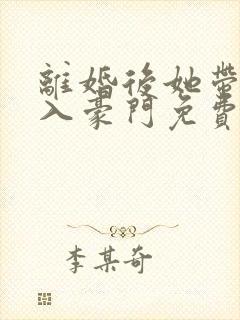 離婚後她帶
入豪門免費
李某奇